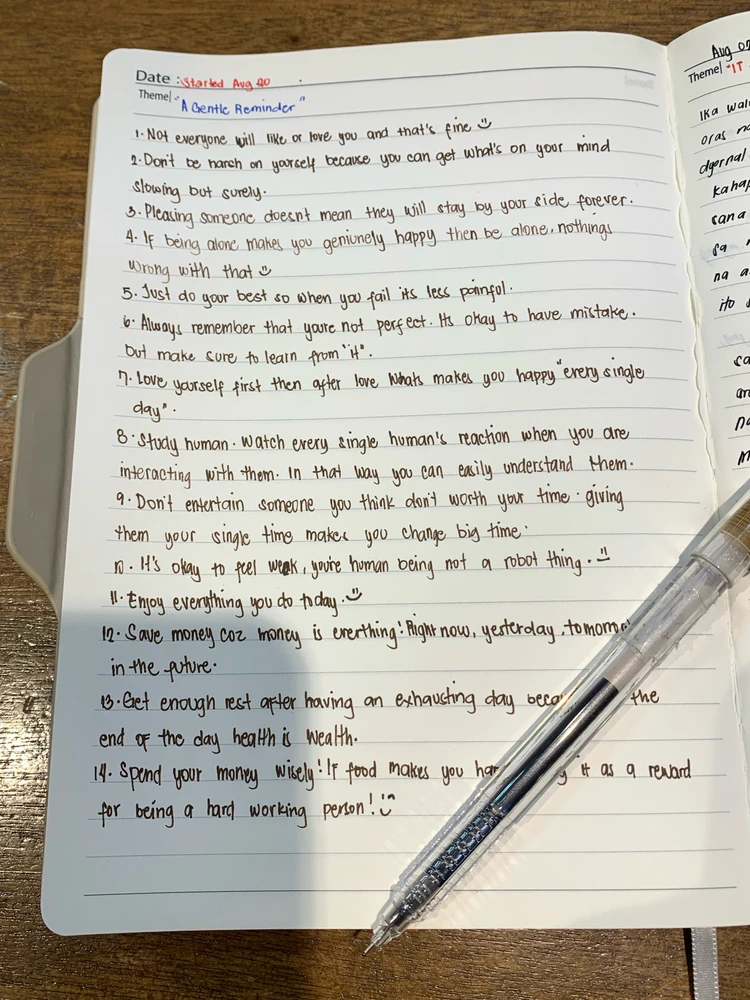 Date : Started Aug 20
Theme| "A Gentle Reminder"
1. Not everyone will like or love you and that's fine
2. Don't be harsh on yourself because you can get what's on your mind
slowing but surely.
3. Pleasing someone doesnt mean they will stay by your side forever.
4. If being alone makes you geniunely happy then be alone, nothings
wrong with that
5. Just do your best so when you fail its less painful.
6. Always remember that youre not perfect. Its okay to have mistake.
but make sure to learn from "it".
7. Love yourself first then after love whats makes you happy "every single
day".
8. Study human. Watch every single human's reaction when you are
interacting with them. In that way you can easily understand them.
9. Don't entertain someone you think don't worth your time. giving
them your single time makes you change big time.
10. It's okay to feel weak, you're human being not a robot thing.
11. Enjoy everything you do today.
12. Save money coz money is ererthing! Right now, yesterday, tomorro
in the future.
13. Get enough rest after having an exhausting day the
end of the day health is wealth.
14. Spend your money wisely! If food makes you it as a reward
for being a hard working person!
Aug
Theme| "IT
Ika
oras
sana
sa
na a
ito